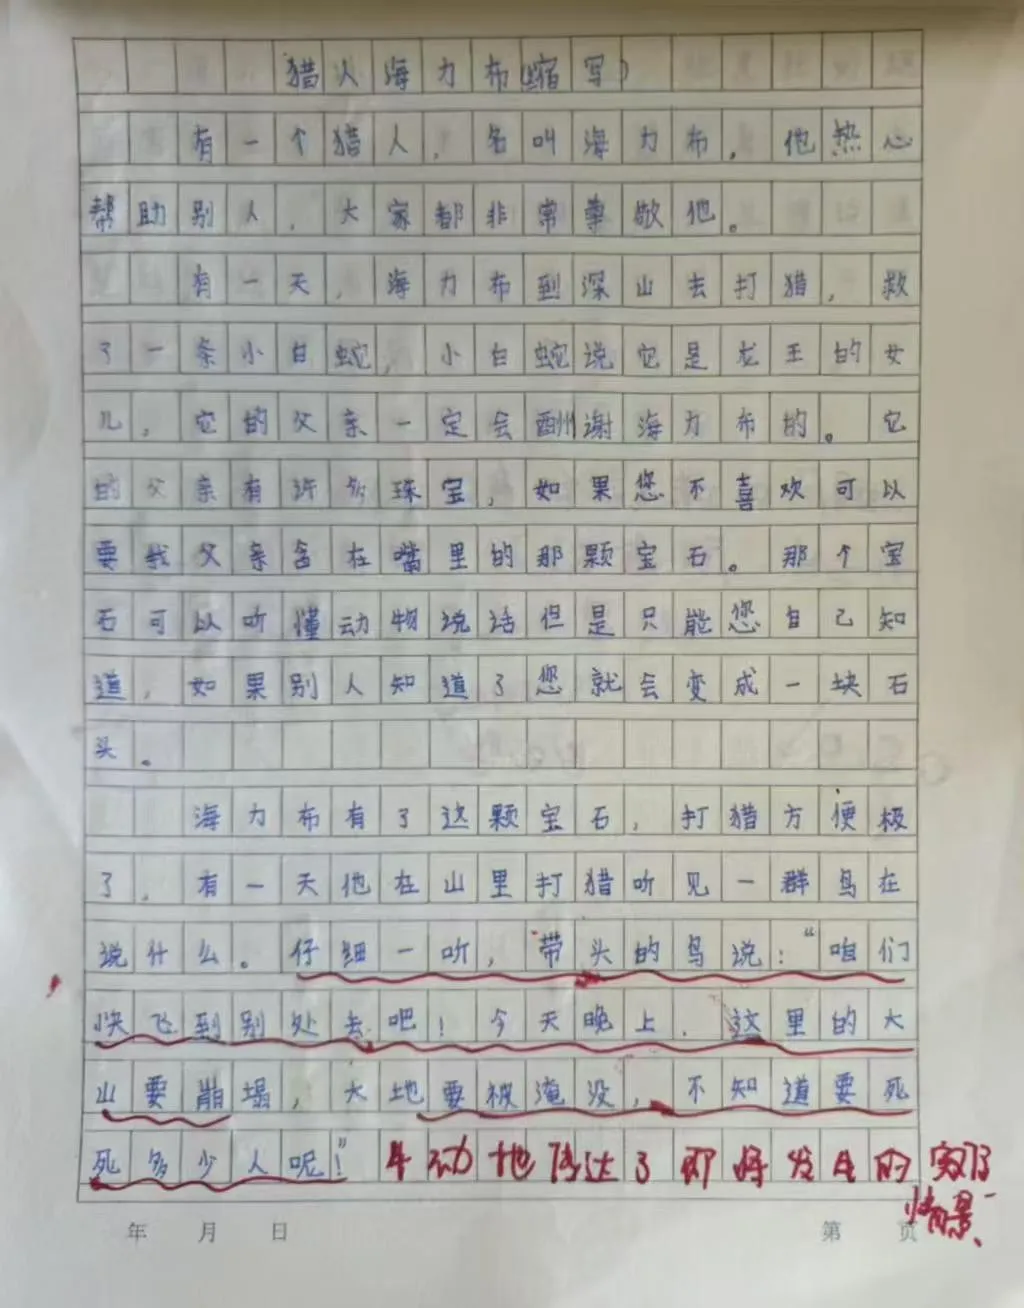 猎人海力布(缩写)
有一个猎人，名叫海力布，他热心
帮助别人，大家都非常尊敬他。
有一天，海力布到深山去打猎，救
了一条小白蛇，小白蛇说它是龙王的女
儿，它的父亲一定会酬谢海力布的。它
的父亲有许多珠宝，如果您不喜欢可以
要我父亲含在嘴里的那颗宝石。那个宝
石可以听懂动物说话但是只能您自己知
道，如果别人知道了您就会变成一块石
头。
海力布有了这颗宝石，打猎方便极
了，有一天他在山里打猎听见一群鸟在
说什么。仔细一听，带头的鸟说：“咱们
快飞到别处去吧！今天晚上，这里的大
山要崩塌，大地要被淹没，不知道要死
死多少人呢！”生动地传达了即将发生的灾难
情景、
年 月 日 第 页